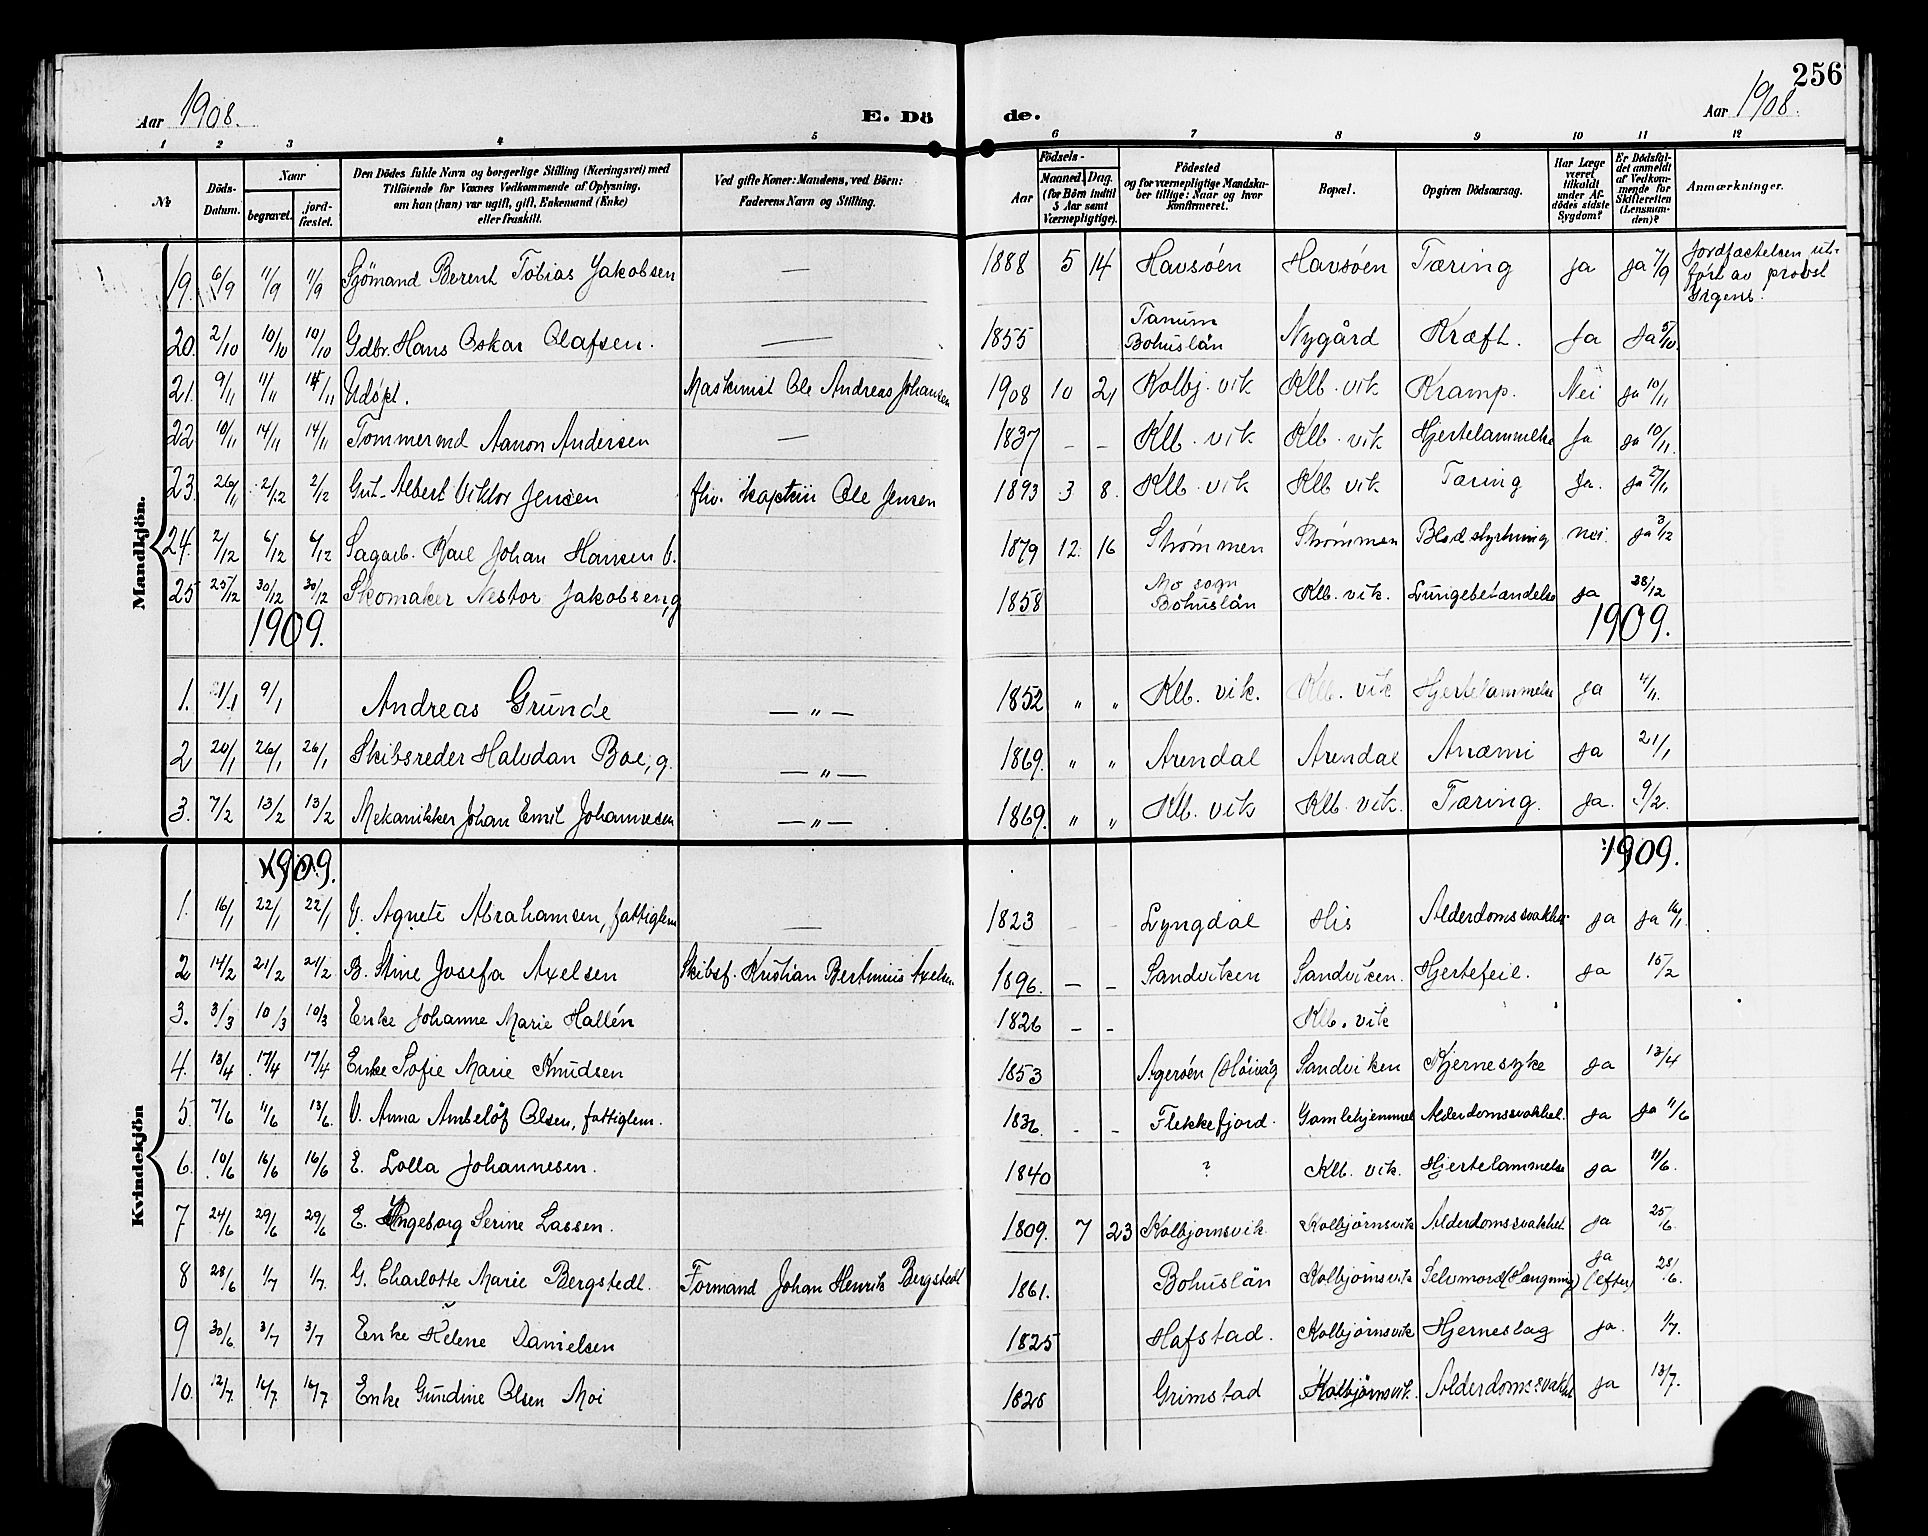 256
Aar 1908. E. Dö de. Aar 1908.
1 2 3 4 5 6 7 8 9 10 11 12
№ Döds-Datum. Naar begravet. jord-fæstet. Den Dödes fulde Navn og borgerlige Stilling (Næringsvei) med Tilföiende for Voxnes Vedkommende af Oplysning, om han (hun) var ugift, gift, Enkemand (Enke) eller fraskilt. Ved gifte Koner: Mandens, ved Börn: Faderens Navn og Stilling. Födsels- Aar Maaned. Dag. (for Börn indtil 5 Aar samt Værnepligtige). Födested og for værnepligtige Mandska-ber tillige: Naar og hvor konfirmeret. Bopæl. Opgiven Dödsaarsag. Har Læge været tilkaldt under Af-dödes sidste Sygdom? Er Dödsfal-det anmeldt af Vedkom-mende for Skifteretten (Lensman-den)? Anmærkninger.
Mandkjön.
19. 6/9 11/9 11/9 Sjömand Berent Tobias Jakobsen — 1888 5 14 Havsöen Havsöen Tæring Ja Ja 7/9 Jordfæstelsen ut-ført av provst
20. 2/10 10/10 10/10 Gdbr. Hans Oskar Olafsen. — 1855 Tanum Bohuslän Nygård Kræft. Ja Ja 5/10.
21. 9/11 11/11 14/11 Udöpt. Maskinist Ole Andreas Johansen 1908 10 21 Kolbj. vik Klb. vik Kramp. Nei Ja 10/11
22 10/11 14/11 14/11 Tømmermd Aanon Andersen — 1837 - - Klb. vik Klb. vik Hjertelammelse Ja Ja 10/11.
23. 26/11 2/12 2/12 Gut. Albert Viktor Jensen fhv. kaptein Ole Jensen 1893 3 8. Klb. vik Klb vik Tæring Ja. Ja 27/11
24. 2/12 6/12 6/12 Sagarb. Karl Johan Hansen U. 1879 12. 16 Strømmen Strømmen Blodstyrtning Nei. Ja 3/12
25 25/12 30/12 30/12 Skomaker Nestor Jakobsen, g 1858 Mo sogn Bohuslän Klb. vik. Lungebetændelse Ja 28/12
1909. 1909.
1. 1/1 9/1 Andreas Grunde — " — 1852 " " Klb. vik. Klb. vik Hjertelammelse Ja 4/1.
2 20/1 26/1 26/1 Skibsreder Halvdan Boe, g. — " — 1869. " " Arendal Arendal Anæmi Ja 21/1
3. 7/2 13/2 13/2 Mekanikker Johan Emil Johannesen — " — 1869. " " Klb. vik Klb. vik. Tæring. Ja. 9/2.
Kvindekjön
1909. 1909.
1. 16/1 22/1 22/1 U. Agnete Abrahamsen, fattiglem — 1823 - - Lyngdal His Alderdomssvakhet Ja Ja 16/1.
2 14/2 21/2 21/2 B. Stine Josefa Axelsen Skibsf. Kristian Bertinius Axelsen 1896. - - Sandviken Sandviken. Hjertefeil. Ja 15/2
3. 3/3 10/3 10/3 Enke Johanne Marie Hallén 1826 - - Klb. vik
4. 13/4 17/4 17/4 Enke Sofie Marie Knudsen 1853 Agerøen (Høivåg Sandviken Hjernesyke Ja 13/4
5 7/6 11/6 13/6. U. Anna Olsen, fattiglem. 1836. - - Flekkefjord. Gamlehjemmet Alderdomssvakhet. Ja Ja 11/6
6. 10/6 16/6 16/6 E. Lolla Johannesen. 1840 ? Klb. vik. Hjertelammelse Ja 11/6.
7 24/6 29/6 29/6 E. Ingeborg Serine Lassen. 1809. 7 23 Kolbjørnsvik. Kolbjørnsvik Alderdomssvakhet. Ja 25/6.
8 28/6 1/7 1/7. G. Charlotte Marie Bergstedt. Formand Johan Henrik Bergstedt 1861. Bohuslän Kolbjørnsvik Selvmord (Hængning) Ja (efter) 28/6.
9 30/6 3/7 3/7 Enke Helene Danielsen 1825 Hafstad. Kolbjørnsvik Hjerneslag Ja. 1/7.
10. 12/7 16/7 16/7 Enke Gundine Olsen Moi 1826 Grimstad Kolbjørnsvik. Alderdomssvakhet Ja 13/7.